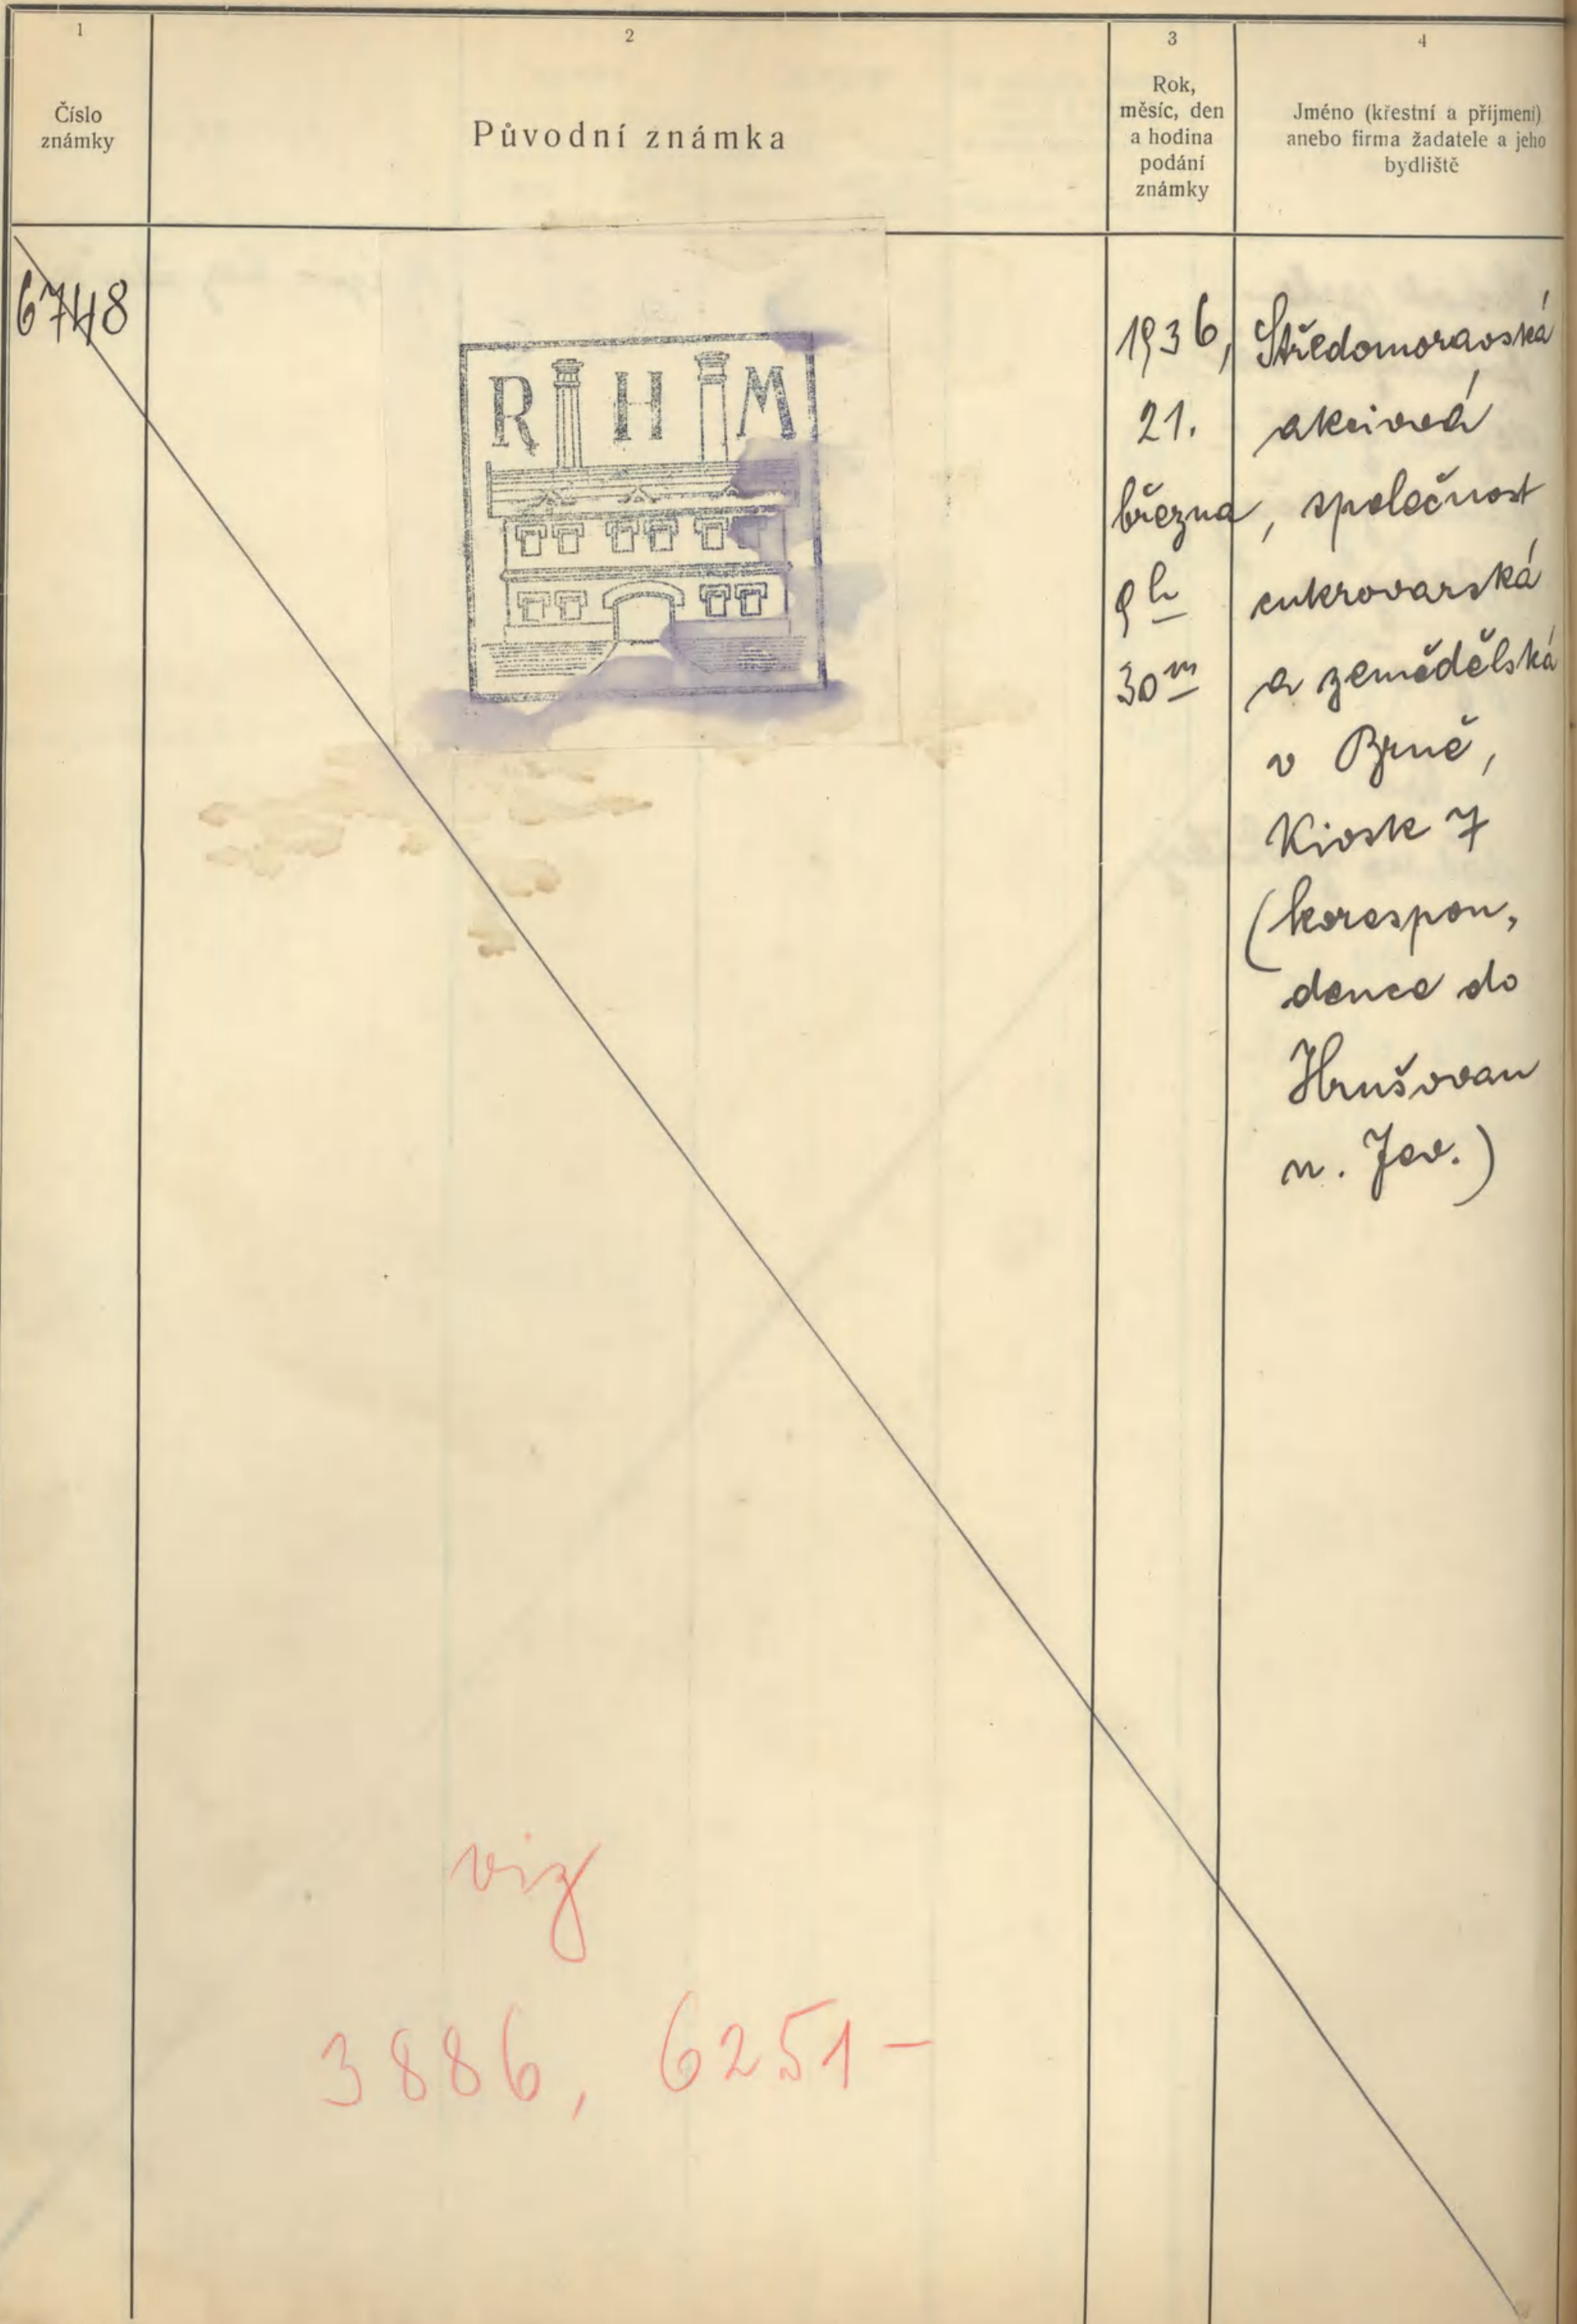 1
Číslo
známky
2
Původní známka
3
Rok,
měsíc, den
a hodina
podání
známky
4
Jméno (křestní a příjmení)
anebo firma žadatele a jeho
bydliště
6748
R H M
1936,
21.
března,
9h
30m
Středomoravská
akciová
společnost
cukrovarská
a zemědělská
v Brně,
Kiosk 7
(korespon,
dence do
Hrušovan
n. Jev.)
viz
3886, 6251-